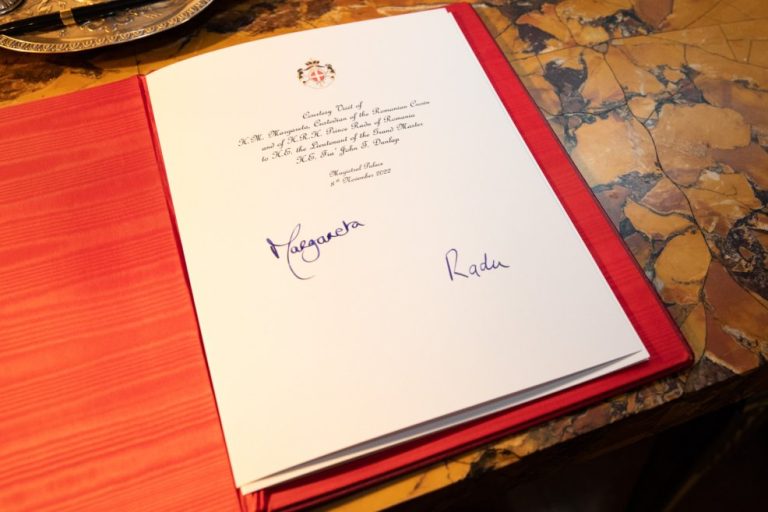 Courtesy Visit of
H.M. Margareta, Custodian of the Romanian Crown
and of H.R.H. Prince Radu of Romania
to H.E. the Lieutenant of the Grand Master
H.E. Fra' John T. Dunlap
Magistral Palace
8th November 2022
Margareta
Radu